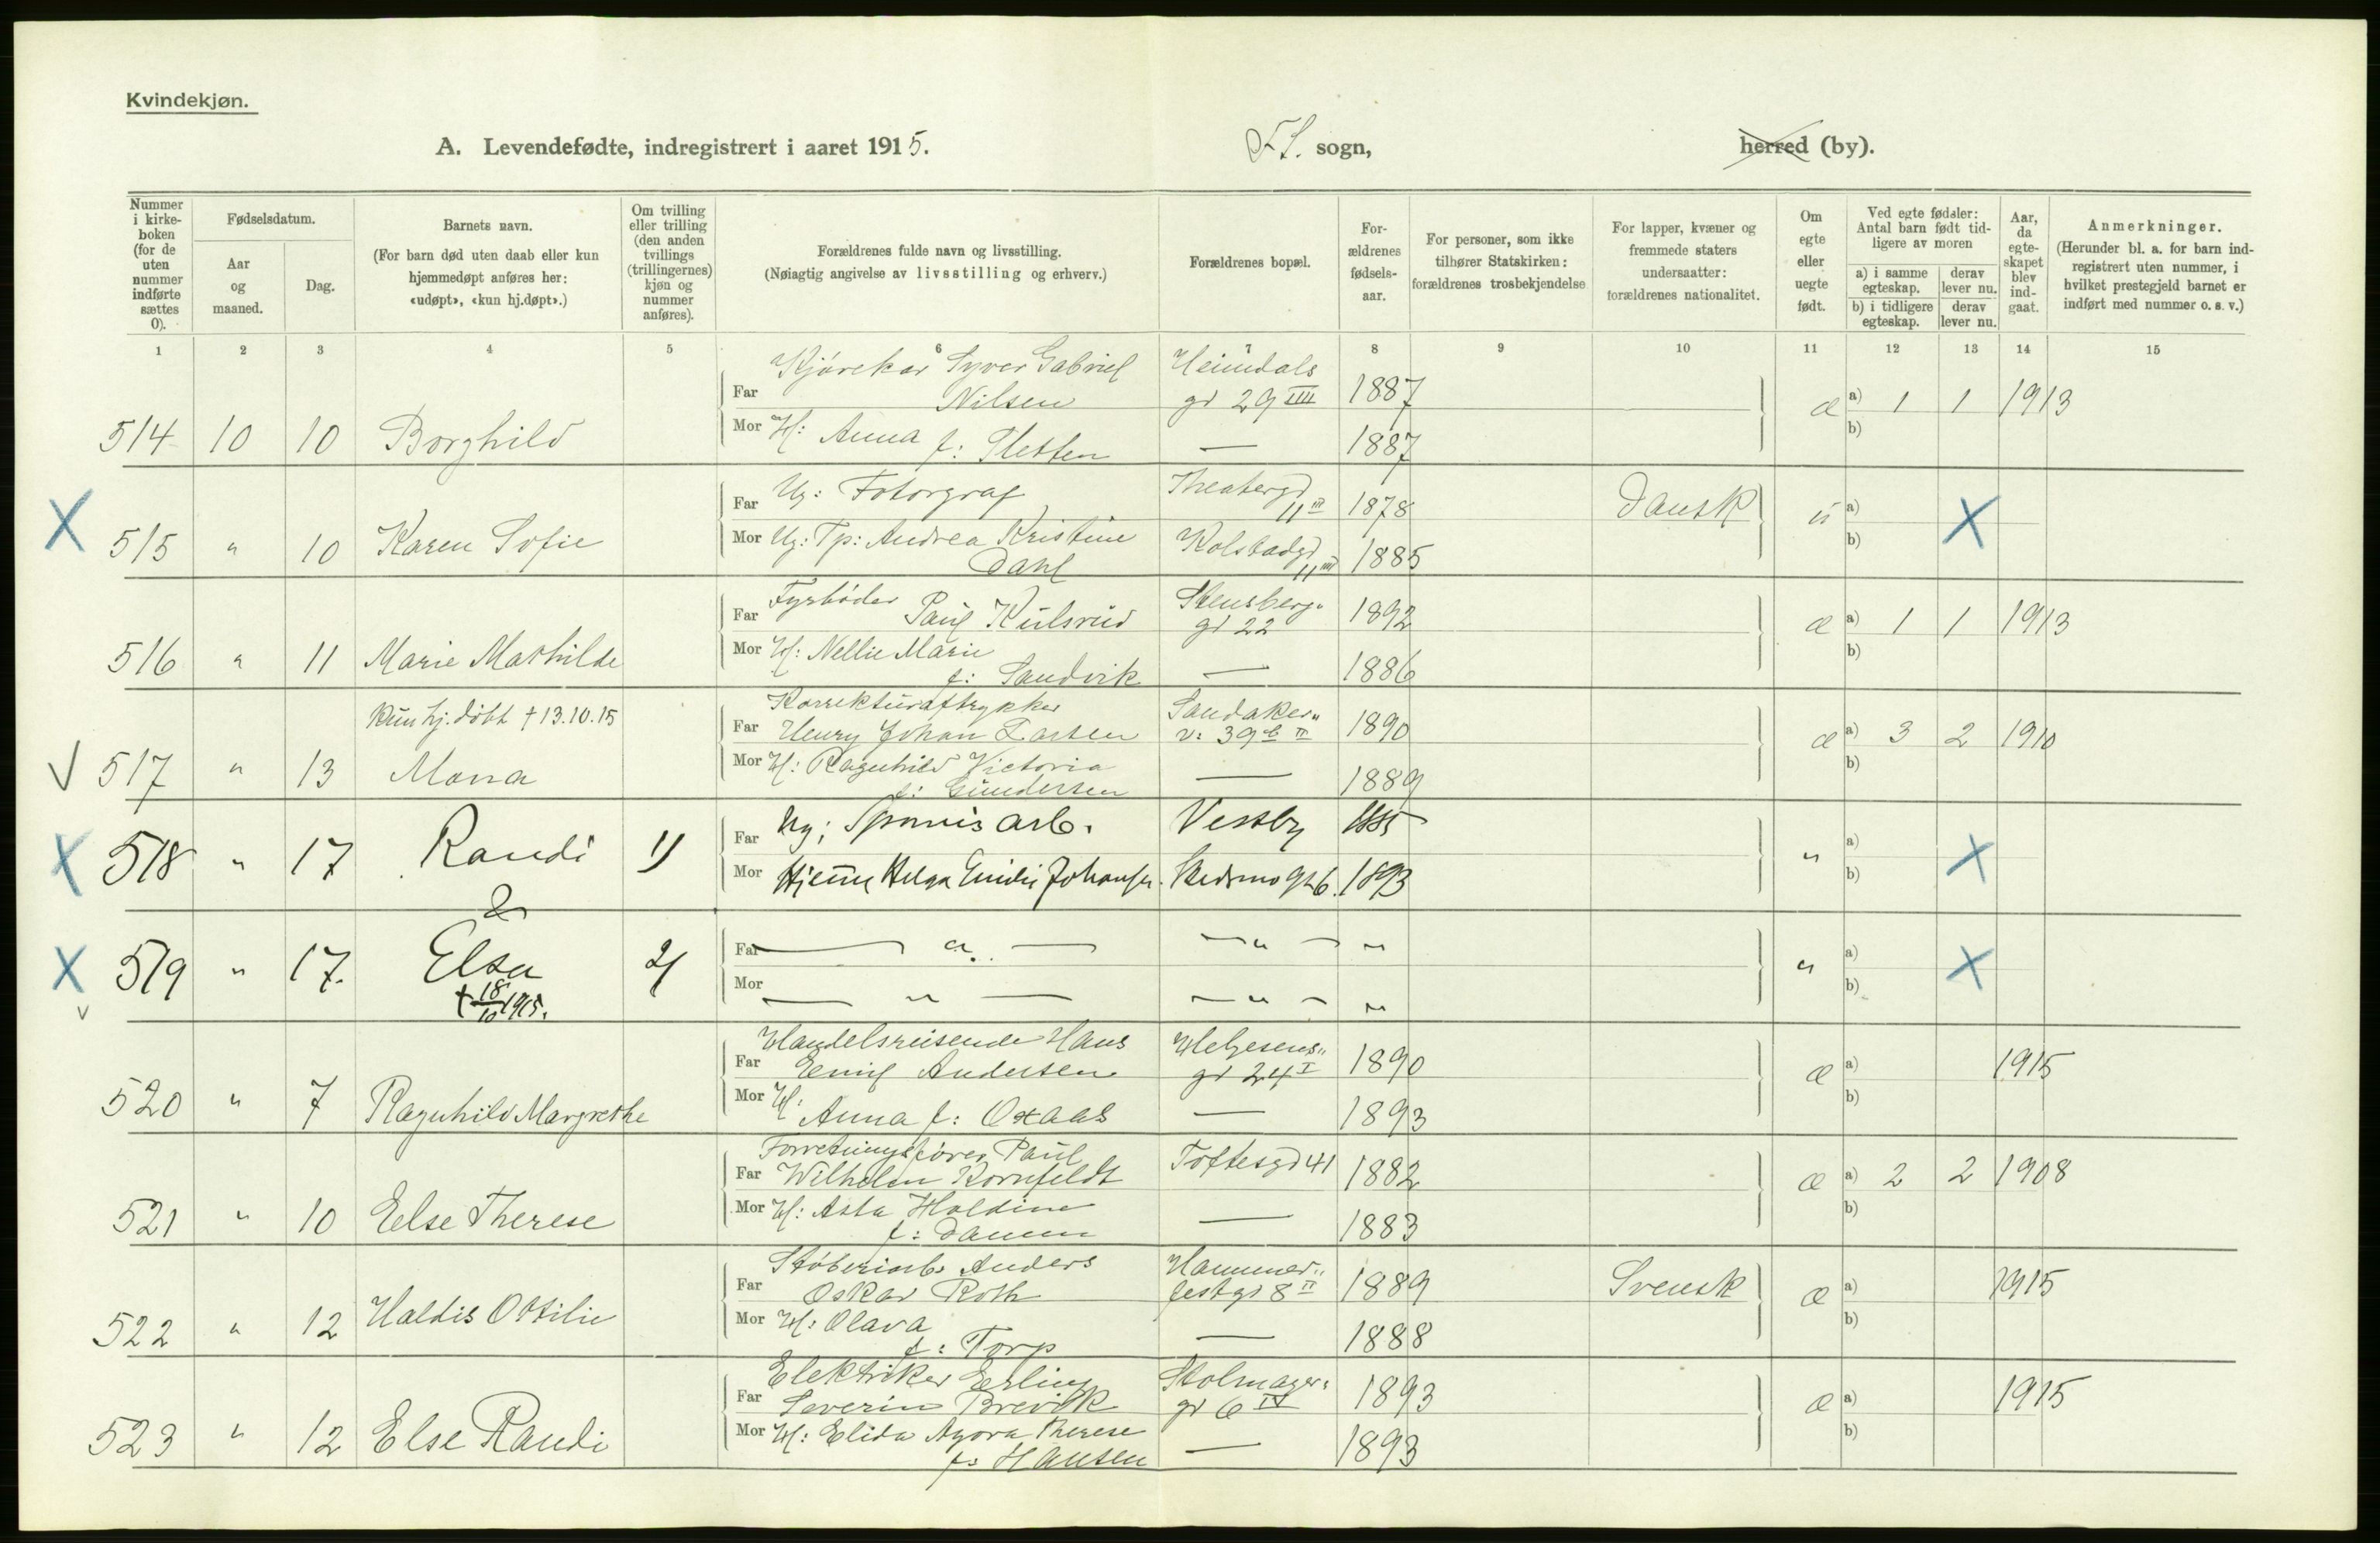 Kvindekjøn.
A. Levendefødte, indregistrert i aaret 1915. F.S. sogn, herred (by).
Nummer i kirke-boken (for de uten nummer indførte sættes 0).
Fødselsdatum.
Aar og maaned.
Dag.
Barnets navn.
(For barn død uten daab eller kun hjemmedøpt anføres her: «udøpt», «kun hj.døpt».)
Om tvilling eller trilling (den anden tvillings (trillingernes) kjøn og nummer anføres).
Forældrenes fulde navn og livsstilling.
(Nøiagtig angivelse av livsstilling og erhverv.)
Forældrenes bopæl.
For-ældrenes fødsels-aar.
For personer, som ikke tilhører Statskirken: forældrenes trosbekjendelse
For lapper, kvæner og fremmede staters undersaatter: forældrenes nationalitet.
Om egte eller uegte født.
Ved egte fødsler: Antal barn født tid-ligere av moren
a) i samme egteskap. derav lever nu.
b) i tidligere egteskap. derav lever nu.
Aar, da egte-skapet blev ind-gaat.
Anmerkninger.
(Herunder bl. a. for barn ind-registrert uten nummer, i hvilket prestegjeld barnet er indført med nummer o. s. v.)
1 2 3 4 5 6 7 8 9 10 11 12 13 14 15
Kjørekar Syver Gabriel Heimdals
Far Nilsen gd 29 IIII 1887 æ a) 1 1 1913
514 10 10 Borghild Mor H: Anna f: Sletten — 1887 b)
Far Ug: Fotograf Theatergd 11 III 1878 Dansk u a) X
X 515 " 10 Karen Sofie Mor Ug: Tp: Andrea Kristine Dahl Kolstadgd 11 III 1885 b)
Far Fyrbøder Paul Kulsrud Stensberg" gd 22 1892 æ a) 1 1 1913
516 " 11 Marie Mathilde Mor H: Nellie Marie f: Sandvik — 1886 b)
Kun hj. døbt + 13.10.15
Far Korrekturaftrykker Henry Johan Larsen Sandaker" v: 39 b II 1890 æ a) 3 2 1910
V 517 " 13 Mona Mor H: Ragnhild Victoria f: Gundersen — 1889 b)
X 518 " 17 Randi 1) Far Ug: arb. Vestby 1885 " a) X
Mor Hjemme Helga Emilie Johansen. Kedsmogt 6. 1893 b)
&
X 519 " 17. Elsa 2) Far — " — — " — " " a) X
V + 18/10 1915. Mor — " — — " — " b)
Far Handelsreisende Hans Emil Andersen Helgesens" gd 24 I 1890 æ a) 1915
520 " 7 Ragnhild Margrethe Mor H: Anna f: Oxaas — 1893 b)
Far Forretningsfører Paul Wilhelm Kornfeldt Toftesgd 41 1882 æ a) 2 2 1908
521 " 10 Else Therese Mor H: Asta Haldine f: Damm — 1883 b)
Far Støberiarb. Anders Oskar Roth Hammer" festgd 8 II 1889 Svensk æ a) 1915
522 " 12 Haldis Ottilie Mor H: Olava f: Torp — 1888 b)
Far Elektriker Erling Severin Brevik Stolmager" gd 6 IV 1893 æ a) 1915
523 " 12 Else Randi Mor H: Elida Agora Therese f: Hansen — 1893 b)